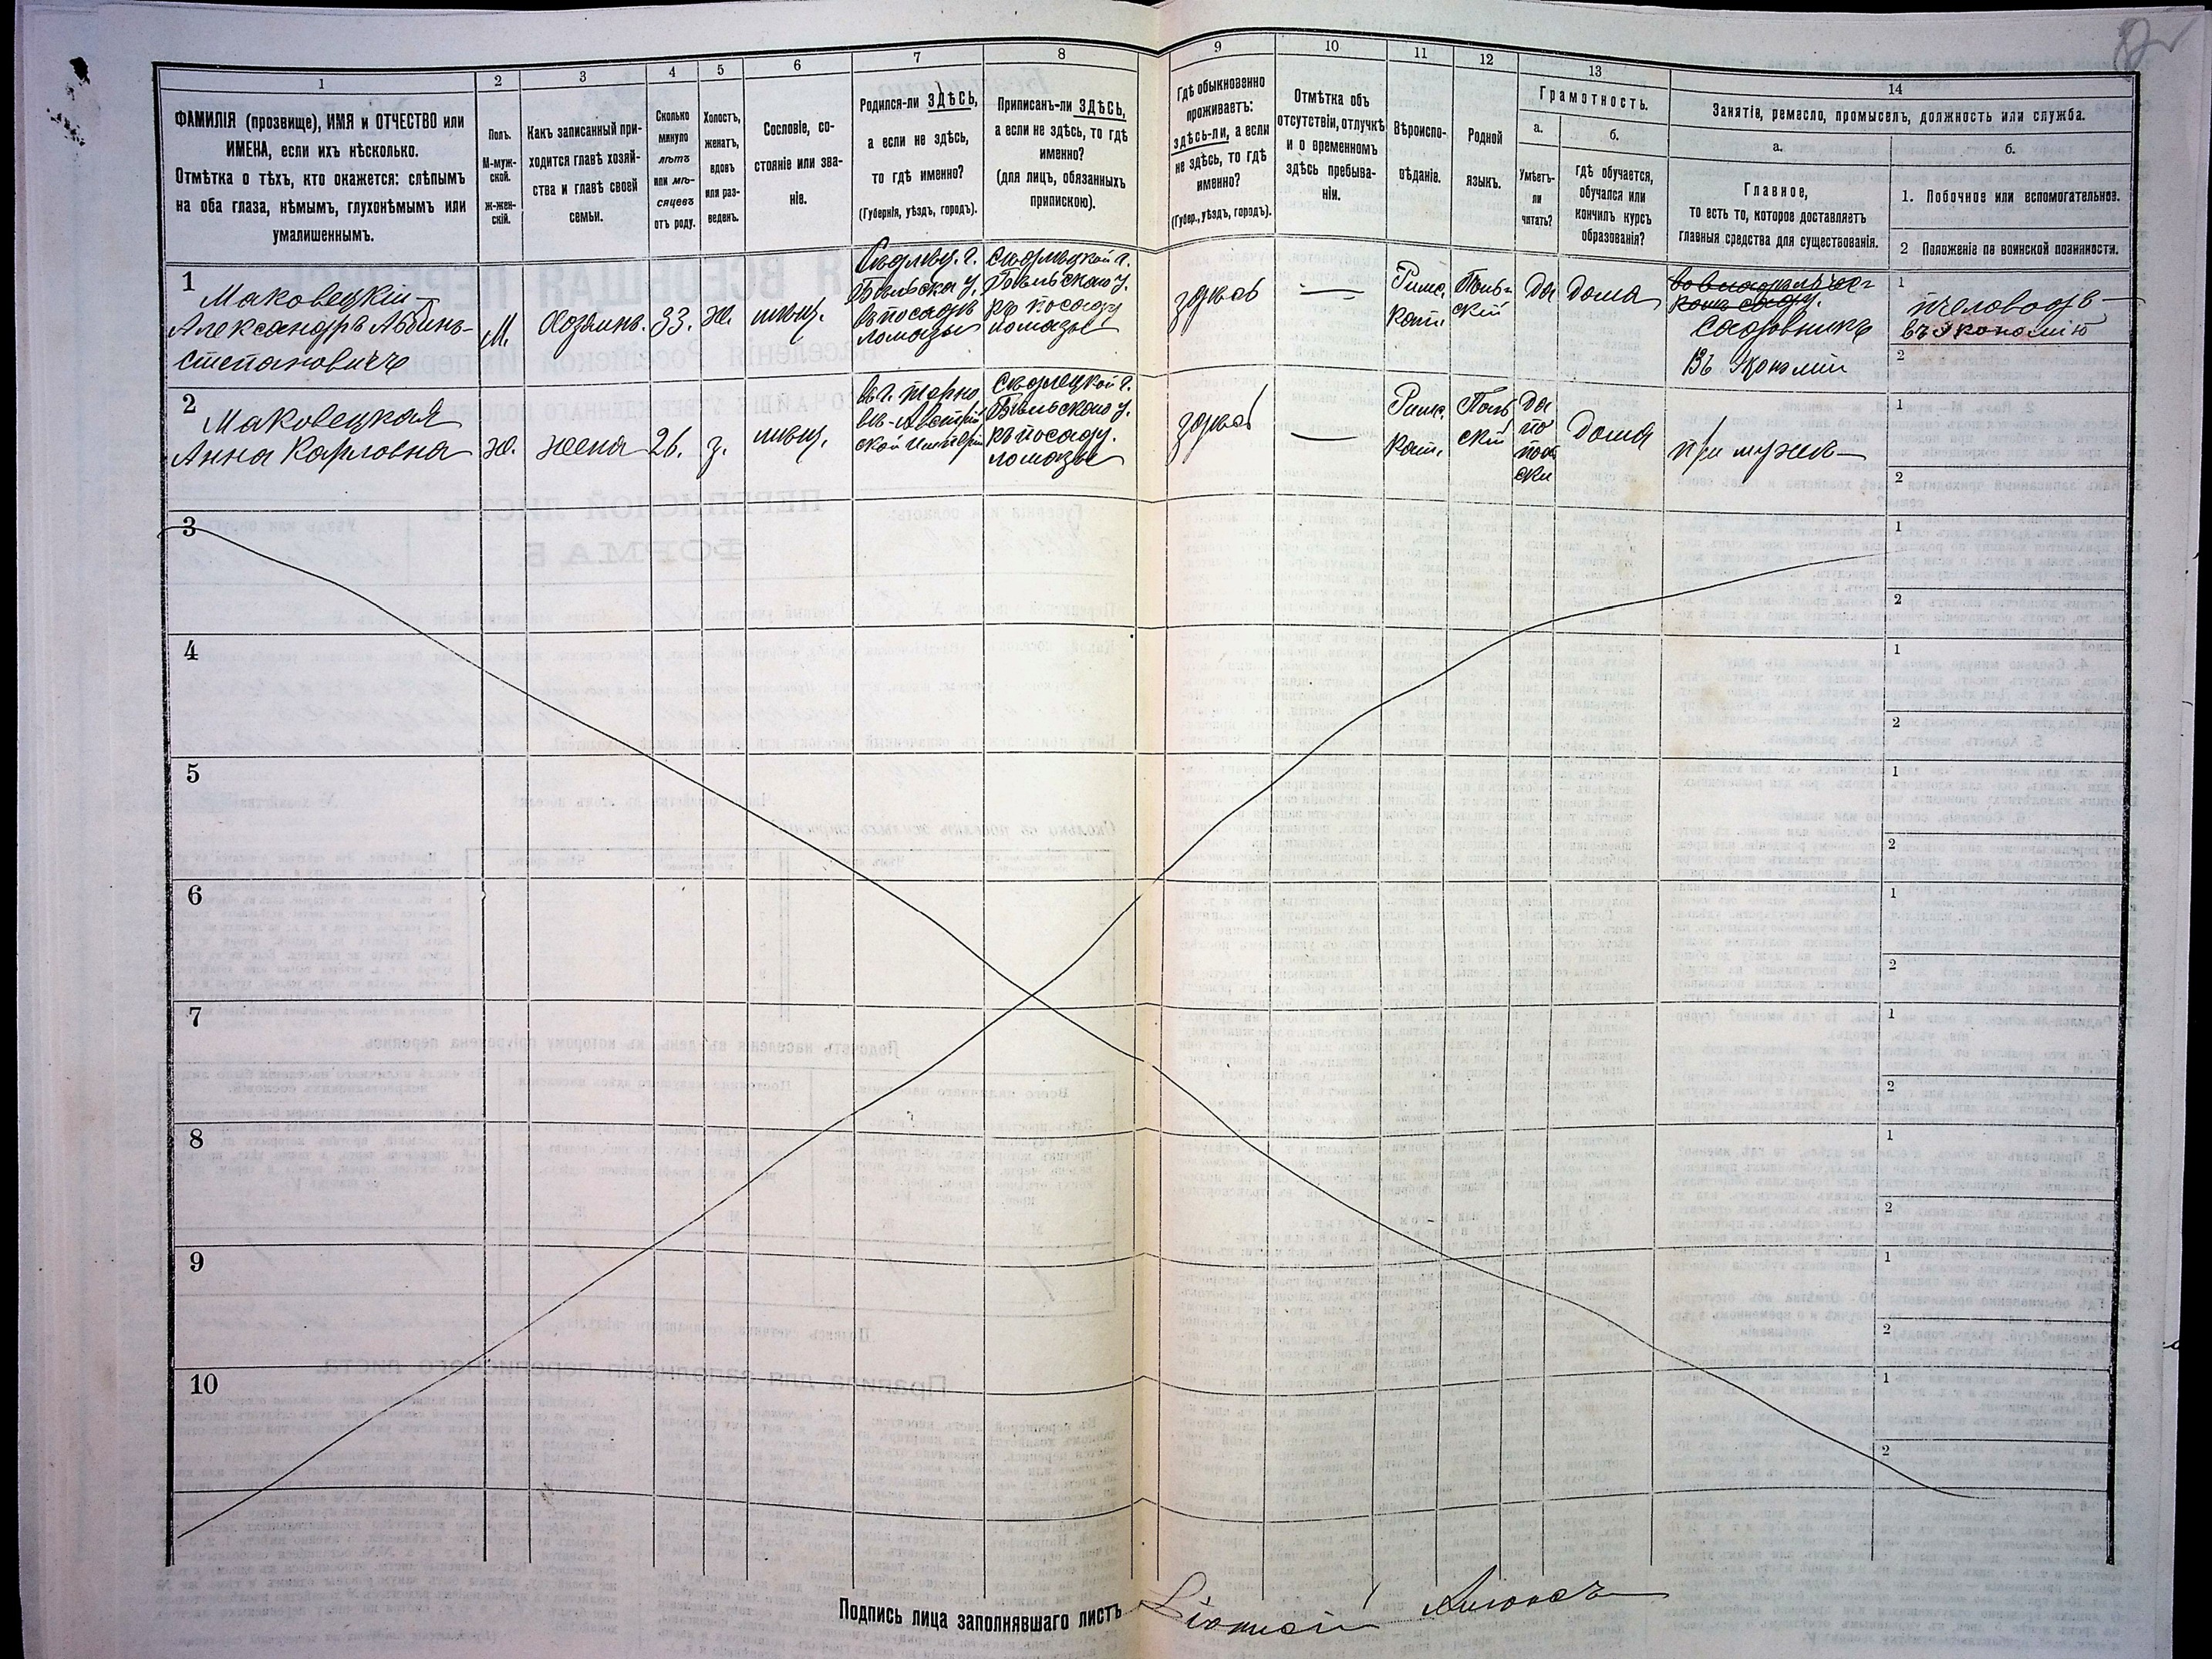 1
2
3
4
5
6
7
8
9
10
11
12
13
14
ФАМИЛІЯ (прозвище), ИМЯ и ОТЧЕСТВО или
ИМЕНА, если ихъ нѣсколько.
Отмѣтка о тѣхъ, кто окажется: слѣпымъ
на оба глаза, нѣмымъ, глухонѣмымъ или
умалишеннымъ.
Полъ.
М-муж-
ской.
ж-жен-
скій.
Какъ записанный при-
ходится главѣ хозяй-
ства и главѣ своей
семьи.
Сколько
минуло
лѣтъ
или мѣ-
сяцевъ
отъ роду.
Холостъ,
женатъ,
вдовъ
или раз-
веденъ.
Сословіе, со-
стояніе или зва-
ніе.
Родился-ли ЗДѢСЬ,
а если не здѣсь,
то гдѣ именно?
(Губернія, уѣздъ, городъ).
Приписанъ-ли ЗДѢСЬ,
а если не здѣсь, то гдѣ
именно?
(для лицъ, обязанныхъ
припискою).
Гдѣ обыкновенно
проживаетъ:
здѣсь-ли, а если
не здѣсь, то гдѣ
именно?
(Губер., уѣздъ, городъ).
Отмѣтка объ
отсутствіи, отлучкѣ
и о временномъ
здѣсь пребыва-
ніи.
Вѣроиспо-
вѣданіе.
Родной
языкъ.
Грамотность.
а.
б.
Умѣетъ-
ли
читать?
гдѣ обучается,
обучался или
кончилъ курсъ
образованія?
Занятіе, ремесло, промыселъ, должность или служба.
а.
б.
Главное,
то есть то, которое доставляетъ
главныя средства для существованія.
1. Побочное или вспомогательное.
2 Положеніе по воинской повинности.
1
Маковецкій
Александръ Альбинъ
Степановичъ
М.
Хозяинъ.
33.
ж.
мѣщ.
Сѣдлец. г.
Бѣльска у.
въ посадѣ
Ломазы
Сѣдлецкой г.
Бѣльскаго у.
къ посаду
Ломазы
здѣсь
—
Римс.
кат.
Поль-
скій
Да
Дома
Садовникъ
въ Экономіи
1
пчеловодъ
въ Экономіи
2
2
Маковецкая
Анна Карловна
ж.
жена
26.
з.
мѣщ.
въ г. Тарно
въ Австрій
ской Имперіи
Сѣдлецкой г.
Бѣльскаго у.
къ посаду
Ломазы
здѣсь
—
Римс.
кат.
Поль
скій
Да
по
поль
ски
Дома
при мужѣ
1
2
3
1
2
4
1
2
5
1
2
6
1
2
7
1
2
8
1
2
9
1
2
10
1
2
Подпись лица заполнявшаго листъ